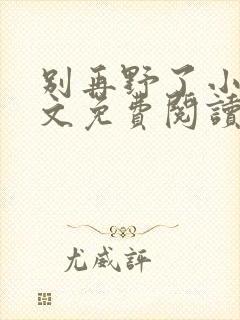 别再野了小
文免費閱讀
尤威評